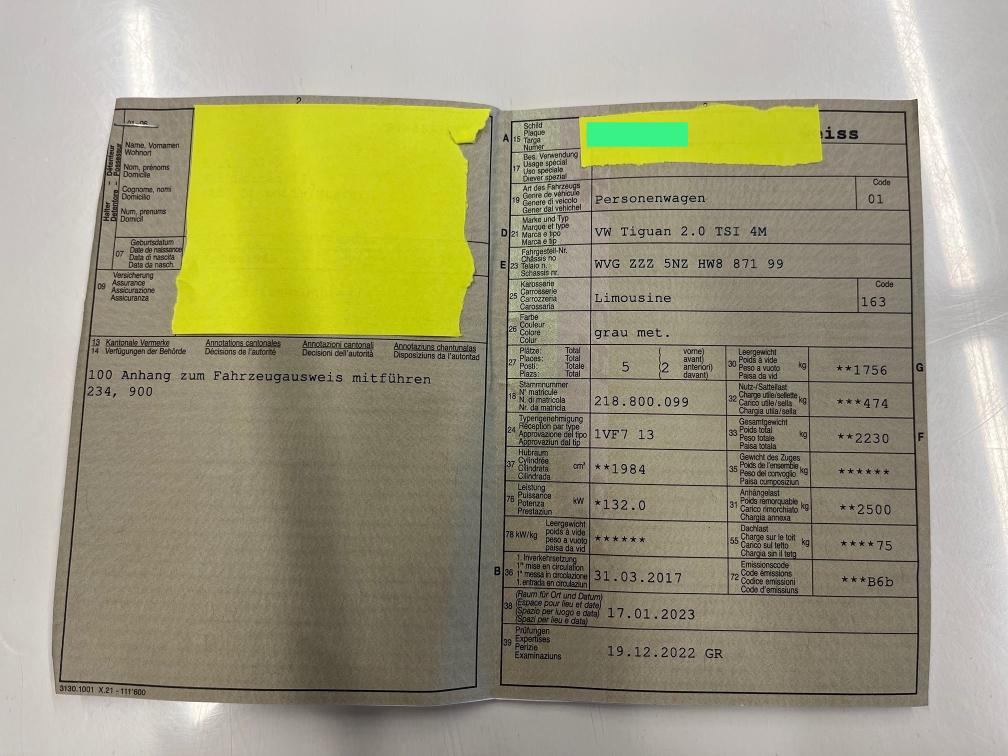 2
01-06
Halter - Détenteur
Detentore - Possessur
Name, Vornamen
Wohnort
Nom, prénoms
Domicile
Cognome, nomi
Domicilio
Num, prenums
Domicil
07
Geburtsdatum
Date de naissance
Data di nascita
Data da nasch.
09
Versicherung
Assurance
Assicurazione
Assicuranza
13 Kantonale Vermerke Annotations cantonales Annotazioni cantonali Annotaziuns chantunalas
14 Verfügungen der Behörde Décisions de l'autorité Decisioni dell'autorità Disposiziuns da l'autoritad
100 Anhang zum Fahrzeugausweis mitführen
234, 900
3130.1001 X.21 - 111'600
A 15
Schild
Plaque
Targa
Numer
eiss
17
Bes. Verwendung
Usage spécial
Uso speciale
Diever spezial
19
Art des Fahrzeugs
Genre de véhicule
Genere di veicolo
Gener dal vehichel
Personenwagen
Code
01
D 21
Marke und Typ
Marque et type
Marca e tipo
Marca e tip
VW Tiguan 2.0 TSI 4M
E 23
Fahrgestell-Nr.
Châssis no
Telaio n.
Schassis nr.
WVG ZZZ 5NZ HW8 871 99
25
Karosserie
Carrosserie
Carrozzeria
Carossaria
Limousine
Code
163
26
Farbe
Couleur
Colore
Colur
grau met.
27
Plätze: Total
Places: Total
Posti: Totale
Plazs: Total
5
(2
vorne)
avant)
anteriori)
davant)
30
Leergewicht
Poids à vide
Peso a vuoto
Paisa da vid
kg
**1756
G
18
Stammnummer
N° matricule
N. di matricola
Nr. da matricla
218.800.099
32
Nutz-/Sattellast
Charge utile/sellette
Carico utile/sella
Chargia utila/sella
kg
***474
24
Typengenehmigung
Réception par type
Approvazione del tipo
Approvaziun dal tip
1VF7 13
33
Gesamtgewicht
Poids total
Peso totale
Paisa totala
kg
**2230
F
37
Hubraum
Cylindrée
Cilindrata
Cilindrada
cm³
**1984
35
Gewicht des Zuges
Poids de l'ensemble
Peso del convoglio
Paisa cumposiziun
kg
******
76
Leistung
Puissance
Potenza
Prestaziun
kW
*132.0
31
Anhängelast
Poids remorquable
Carico rimorchiato
Chargia annexa
kg
**2500
78 kW/kg
Leergewicht
poids à vide
peso a vuoto
paisa da vid
******
55
Dachlast
Charge sur le toit
Carico sul tetto
Chargia sin il tetg
kg
****75
B 36
1. Inverkehrsetzung
1re mise en circulation
1a messa in circolazione
1. entrada en circulaziun
31.03.2017
72
Emissionscode
Code émissions
Codice emissioni
Code d'emissiuns
***B6b
38
(Raum für Ort und Datum)
(Espace pour lieu et date)
(Spazio per luogo e data)
(Spazi per lieu e data)
17.01.2023
39
Prüfungen
Expertises
Perizie
Examinaziuns
19.12.2022 GR